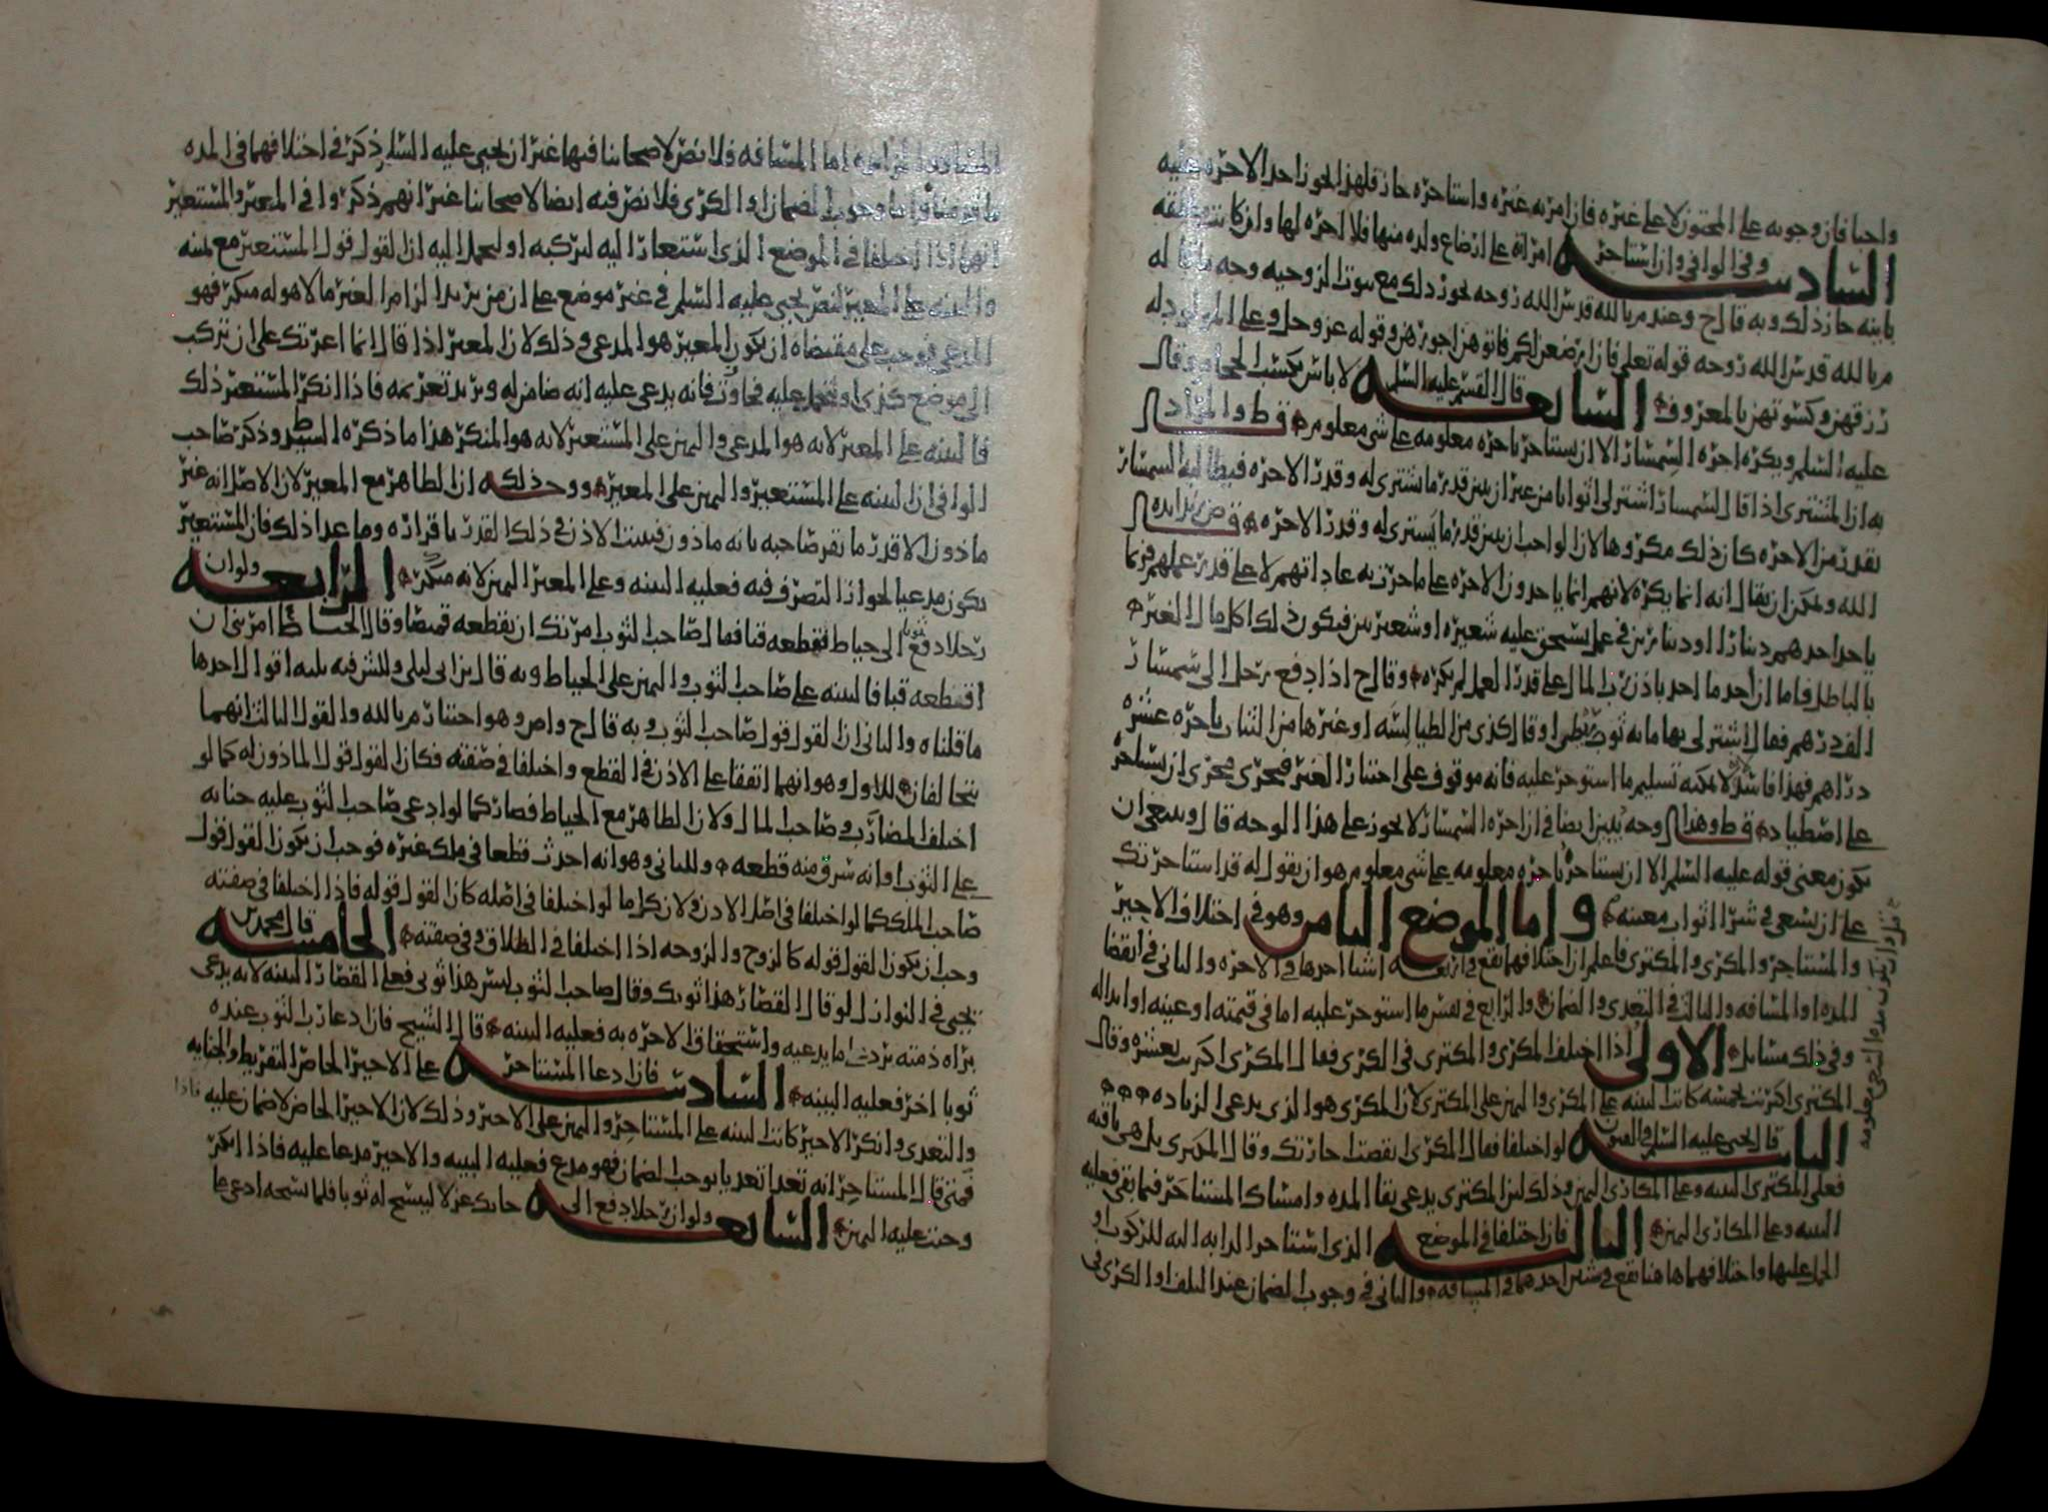 واجبا فان وجوبه على المختون لا على غيره فان امر به غيره واستاجره جاز فلهذا يجوز اخذ الاجره عليه
السادسه وفي الوافي وان استاجر امراة على ارضاع ولده منها فلا اجره لها وان كانت مطلقه
باينه جاز ذلك وبه قال ح وعند م بالله قدس الله روحه يجوز ذلك مع ثبوت الزوجيه وجه ما قاله
م بالله قدس الله روحه قوله تعالى فان ارضعن لكم فاتوهن اجورهن وقوله عز وجل وعلى المولود له
رزقهن وكسوتهن بالمعروف السابعه قال القسم عليه السلم لا باس بكسب الحجام وقال
عليه السلم ويكره اجره السمسار الا ان يستاجر باجره معلومه على شي معلوم قط والمراد
به ان المشتري اذا قال للسمسار اشتر لي اثوابا من غير ان يبين قدر ما يشتري له وقدر الاجره فيطالبه السمسار
بقدر من الاجره كان ذلك مكروها لان الواجب ان يبين قدر ما يشتري له وقدر الاجره قال ض زيد ايده
الله ويمكن ان يقال انه انما يكره لانهم انما ياخذون الاجره على ما جرت به عاداتهم لا على قدر عملهم فربما
ياخذ احدهم دينارا او دينارين في عمل يستحق عليه شعيره او شعيرتين فيكون ذلك اكل مال الغير
بالباطل فاما ان أخذ ما اخذ باذن رب المال على قدر العمل لم يكره وقال ح اذا دفع رجل الى سمسار
الف درهم فقال اشتر لي بها مايه ثوب او قال كذي من الطيالسه او غيرها من الثياب باجره عشره
دراهم فهذا فاسد لا يمكنه تسليم ما استوجر عليه فانه موقوف على اختيار الغير فجرى مجرى ان يستاجره
على اصطياد قط وهذا وجه يبين ايضا في ان اجره السمسار لا يجوز على هذا الوجه قال وينبغي ان
يكون معنى قوله عليه السلم الا ان يستاجره باجره معلومه على شي معلوم هو ان يقول له قد استاجرتك
على ان تسعى في شرا اثواب معينه واما الموضع الثامن وهو في اختلاف الاجير
والمستاجر والمكري والمكتري فاعلم ان اختلافهما يقع في اربعه اشيا احدها في الاجره والثاني في انقضا
المده او المسافه والثالث في التعدي والضمان والرابع في نفس ما استوجر عليه اما في قيمته او عينه او ابداله
وفي ذلك مسايل الاولى اذا اختلف المكري والمكتري في الكرى فقال المكري اكريت بعشره وقال
المكتري اكريت بخمسه كانت البينه على المكري واليمين على المكتري لان المكري هو الذي يدعي الزياده
الثانيه قال يحيى عليه السلم في الفنون لو اختلفا فقال المكري انقضت اجارتك وقال المكتري بل هي باقيه
فعلى المكتري البينه وعلى المكاري اليمين وذلك لان المكتري يدعي بقا المده وامساك المستاجر فيما بقى فعليه
البينه وعلى المكاري اليمين الثالثه فان اختلفا في الموضع الذي استاجر الدابه اليه للركوب او
الحمل عليها واختلافهما هاهنا يقع في شيئين احدهما في المسافه والثاني في وجوب الضمان عند التلف او الكرى في
اما المسافه فلا نص لاصحابنا فيها غير ان يحيى عليه السلم ذكر في اختلافهما في المده
ما قدمنا واما وجوب الضمان او الكرى فلا نص فيه ايضا لاصحابنا غير انهم ذكروا في المعير والمستعير
انهما اذا اختلفا في الموضع الذي استعار اليه ليركبه او ليحمل اليه ان القول قول المستعير مع يمينه
والبينه على المعير لنص يحيى عليه السلم في غير موضع على ان من يريد الزام الغير مالا هو له منكر فهو
المدعي فوجب على مقتضاه ان يكون المعير هو المدعي وذلك لان المعير اذا قال انما اعرتك على ان تركب
الى موضع كذى او تحمل عليه فجاوزت فانه يدعي عليه انه ضامن له ويريد تغريمه فاذا انكر المستعير ذلك
فالبينه على المعير لانه هو المدعي واليمين على المستعير لانه هو المنكر هذا ما ذكره السيد ط وذكر صاحب
الوافي ان البينه على المستعير واليمين على المعير ووجه ذلك ان الظاهر مع المعير لان الاصل انه غير
ماذون الا قدر ما يقر صاحبه بانه ماذون فيثبت الاذن في ذلك القدر باقراره وما عدا ذلك فان المستعير
يكون مدعيا لجواز التصرف فيه فعليه البينه وعلى المعير اليمين لانه منكر الرابعه ولو ان
رجلا دفع ثوبا الى خياط فقطعه قبا فقال صاحب الثوب امرتك ان تقطعه قميصا وقال الخياط امرتني ان
اقطعه قبا فالبينه على صاحب الثوب واليمين على الخياط وبه قال ابن ابي ليلى وللش فيه ثلثه اقوال احدها
ما قلناه والثاني ان القول قول صاحب الثوب وبه قال ح واص وهو اختيار م بالله والقول الثالث انهما
يتحالفان للاول وهو انهما اتفقا على الاذن في القطع واختلفا في صفته فكان القول قول الماذون له كما لو
اختلف المضارب وصاحب المال ولان الظاهر مع الخياط فصار كما لو ادعى صاحب الثوب عليه جنايه
على الثوب او انه سرق منه قطعه وللثاني وهو انه احدث قطعا في ملك غيره فوجب ان يكون القول قول
صاحب الملك كما لو اختلفا في اصل الاذن ولان كل ما لو اختلفا في اصله كان القول قوله فاذا اختلفا في صفته
وجب ان يكون القول قوله كالزوج والزوجه اذا اختلفا في الطلاق وفي صفته الخامسه قال محمد بن
يحيى في النوازل لو قال القصار هذا ثوبك وقال صاحب الثوب ليس هذا ثوبي فعلى القصار البينه لانه يدعي
براه ذمته برد ما يدعيه واستحقاق الاجره به فعليه البينه قال الشيخ فان ادعا رب الثوب عنده
ثوبا اخر فعليه البينه السادسه فان ادعا المستاجر على الاجير الخاص التفريط والجنايه
والتعدي وانكر الاجير كانت البينه على المستاجر واليمين على الاجير وذلك لان الاجير الخاص لا ضمان عليه فاذا
فمتى قال المستاجر انه تعدا تعديا يوجب الضمان فهو مدع فعليه البينه والاجير مدعا عليه فاذا انكر
وجبت عليه اليمين السابعه ولو ان رجلا دفع الى حائك غزلا لينسج له ثوبا فلما نسجه ادعى على